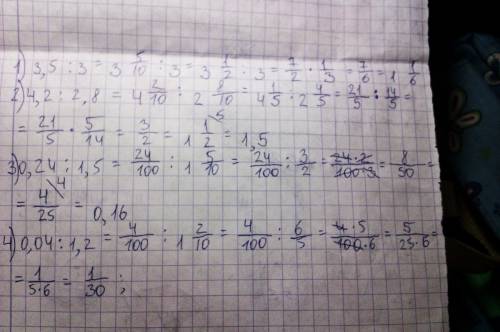 1) 3,5 : 3 = 3 5/10 : 3 = 3 1/2 · 3 = 7/2 · 1/3 = 7/6 = 1 1/6
2) 4,2 : 2,8 = 4 2/10 : 2 8/10 = 4 1/5 : 2 4/5 = 21/5 : 14/5 =
= 21/5 · 5/14 = 3/2 = 1 1/2 \5 = 1,5
3) 0,24 : 1,5 = 24/100 : 1 5/10 = 24/100 : 3/2 = 24·2/100·3 = 8/50 =
= 4/25 \4 = 0,16
4) 0,04 : 1,2 = 4/100 : 1 2/10 = 4/100 : 6/5 = 4·5/100·6 = 5/25·6 =
= 1/5·6 = 1/30 ;